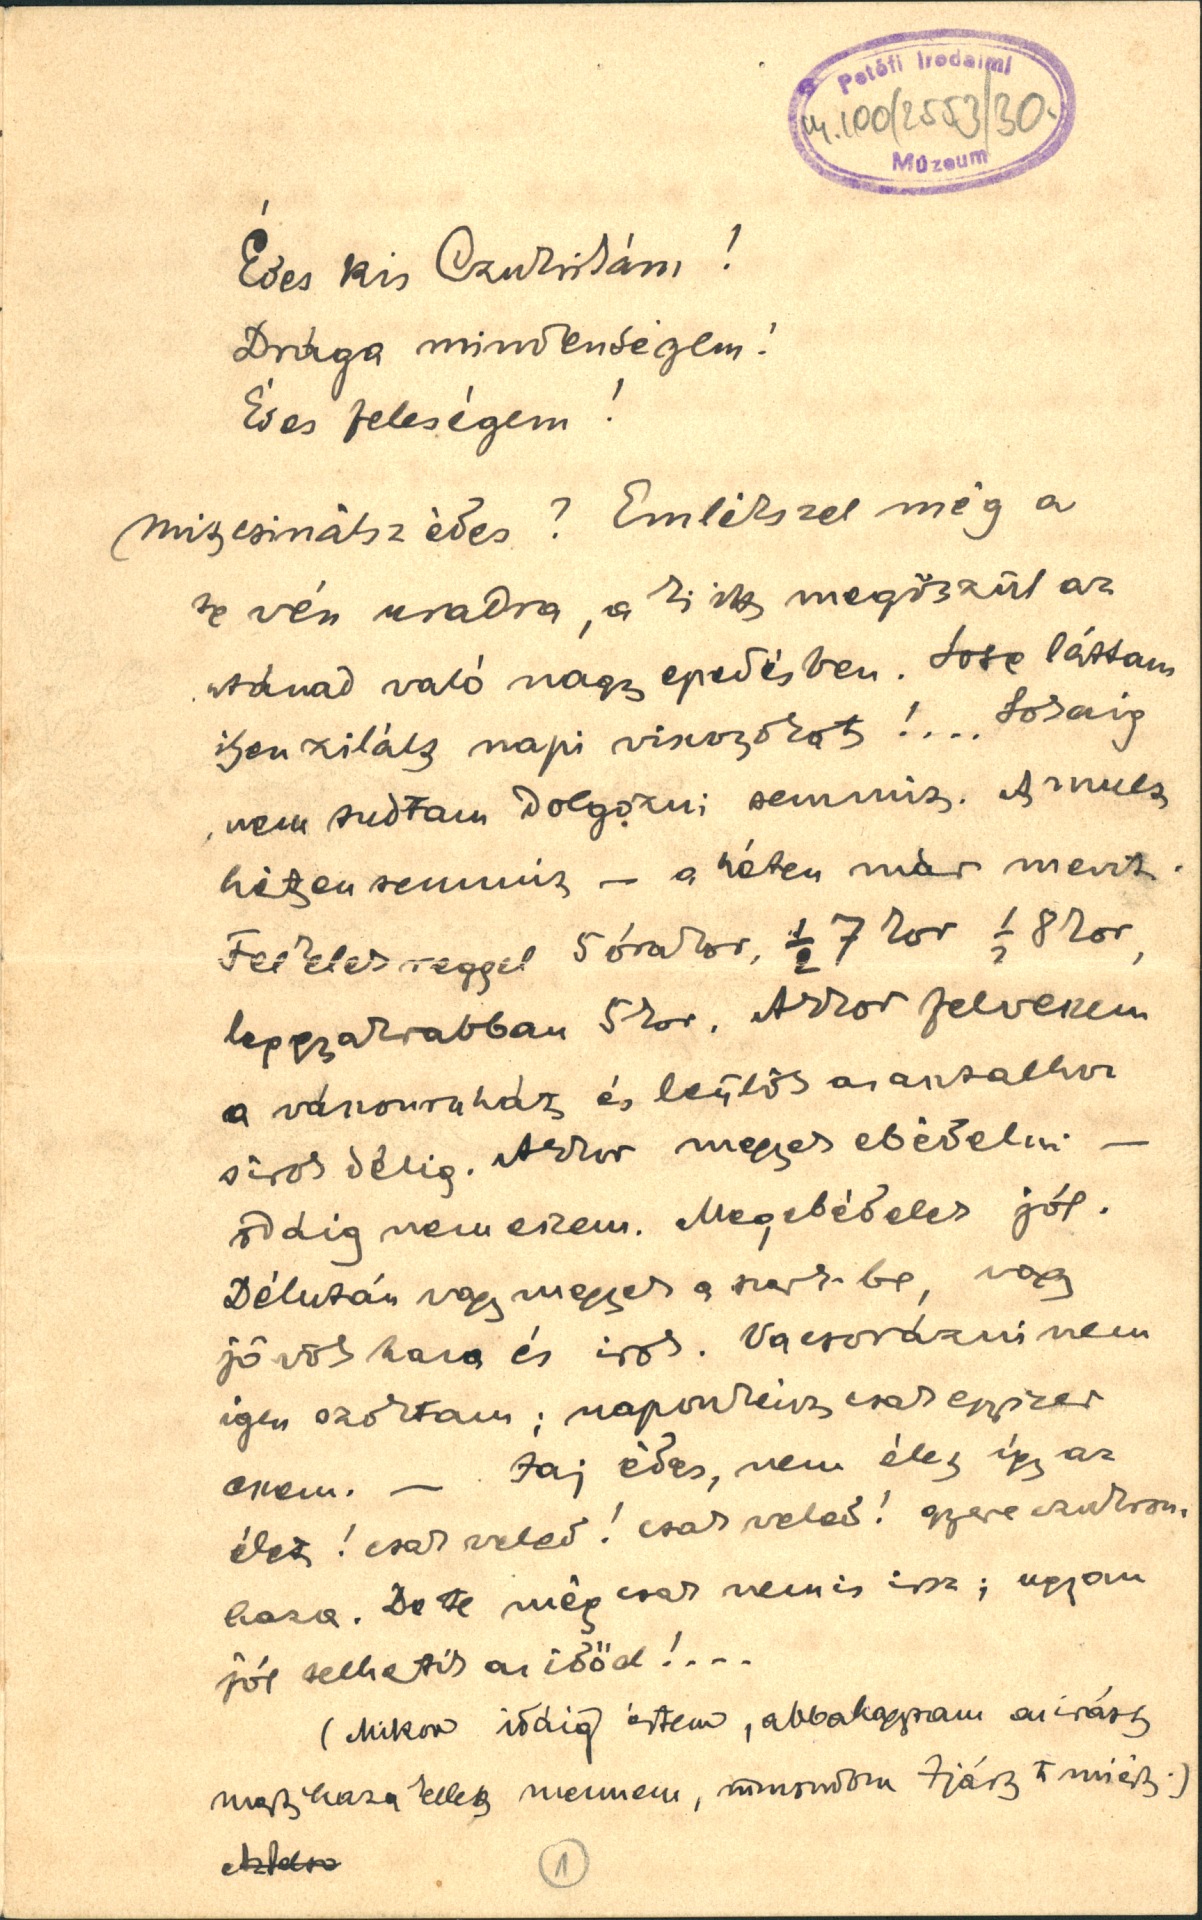 Petőfi Irodalmi
100/2553/30.
Múzeum
Édes kis Czukrikám!
Drága mindenségem!
Édes feleségem!
Mit csinálsz édes? Emlékszel még a
te vén uradra, a ki itt megőszül az
utánad való nagy epedésben. Sose láttam
ilyen zilált napi viszonyokat!... Sokáig
nem tudtam dolgozni semmit. A mult
héten semmit – a héten már ment.
Felkelek reggel 5 órakor, ½ 7 kor ½ 8 kor,
leggyakrabban 5 kor. Akkor felveszem
a vászonruhát és leülök az asztalhoz
írok délig. Akkor megyek ebédelni —
addig nem eszem. Megebédelek jól.
Délután vagy megyek a szerk.-be, vagy
jövök haza és irok. Vacsorázni nem
igen szoktam; naponkint csak egyszer
eszem. — Jaj édes, nem élet így az
élet! csak veled! csak veled! gyere czukrom
haza. De te még csak nem is irsz; ugyan
jól telhetik az időd!...
(Mikor idáig értem, abbahagytam az irást
mert haza kellett mennem, miért.)
1